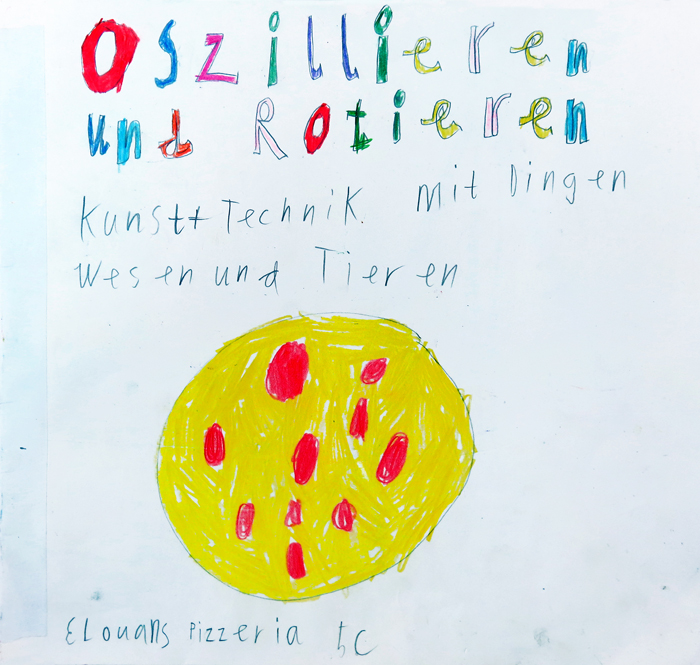 Oszillieren
und Rotieren
Kunst+Technik mit Dingen
Wesen und Tieren
Elouans Pizzeria 5c